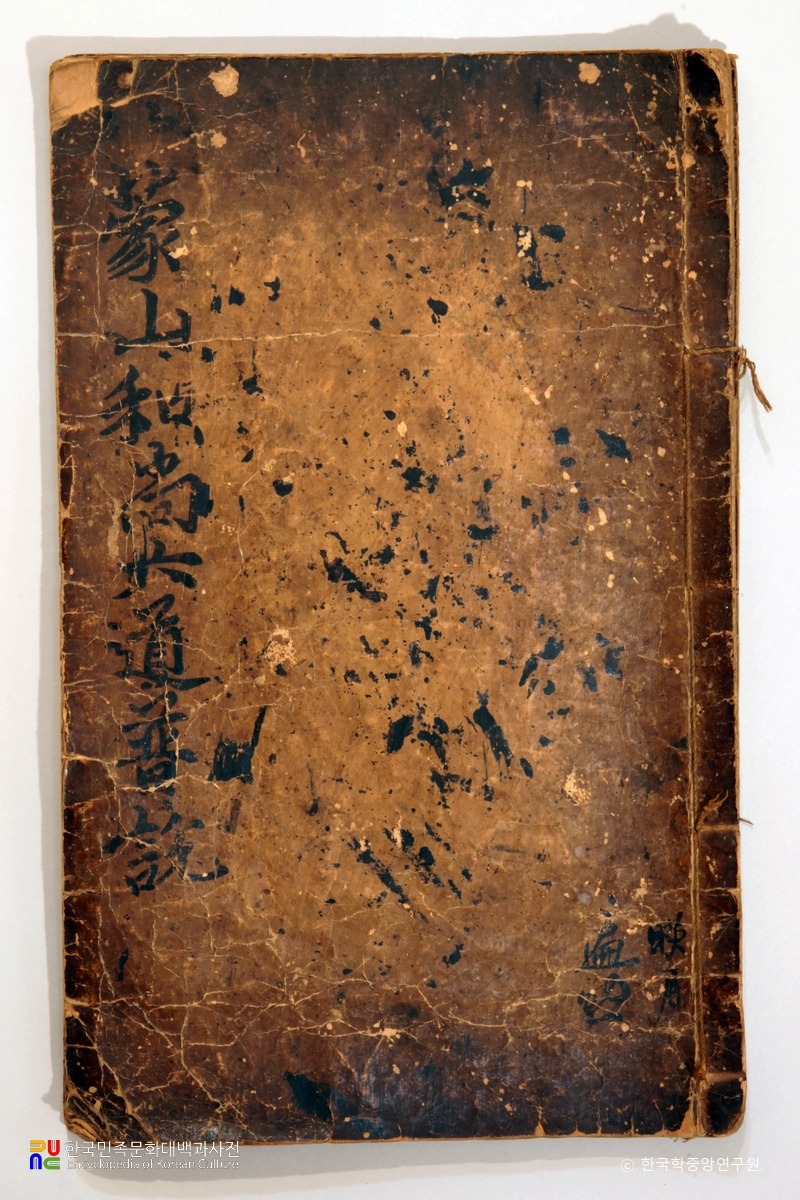 蒙山和尚六道普說
映月
한국민족문화대백과사전
Encyclopedia of Korean Culture
© 한국학중앙연구원.